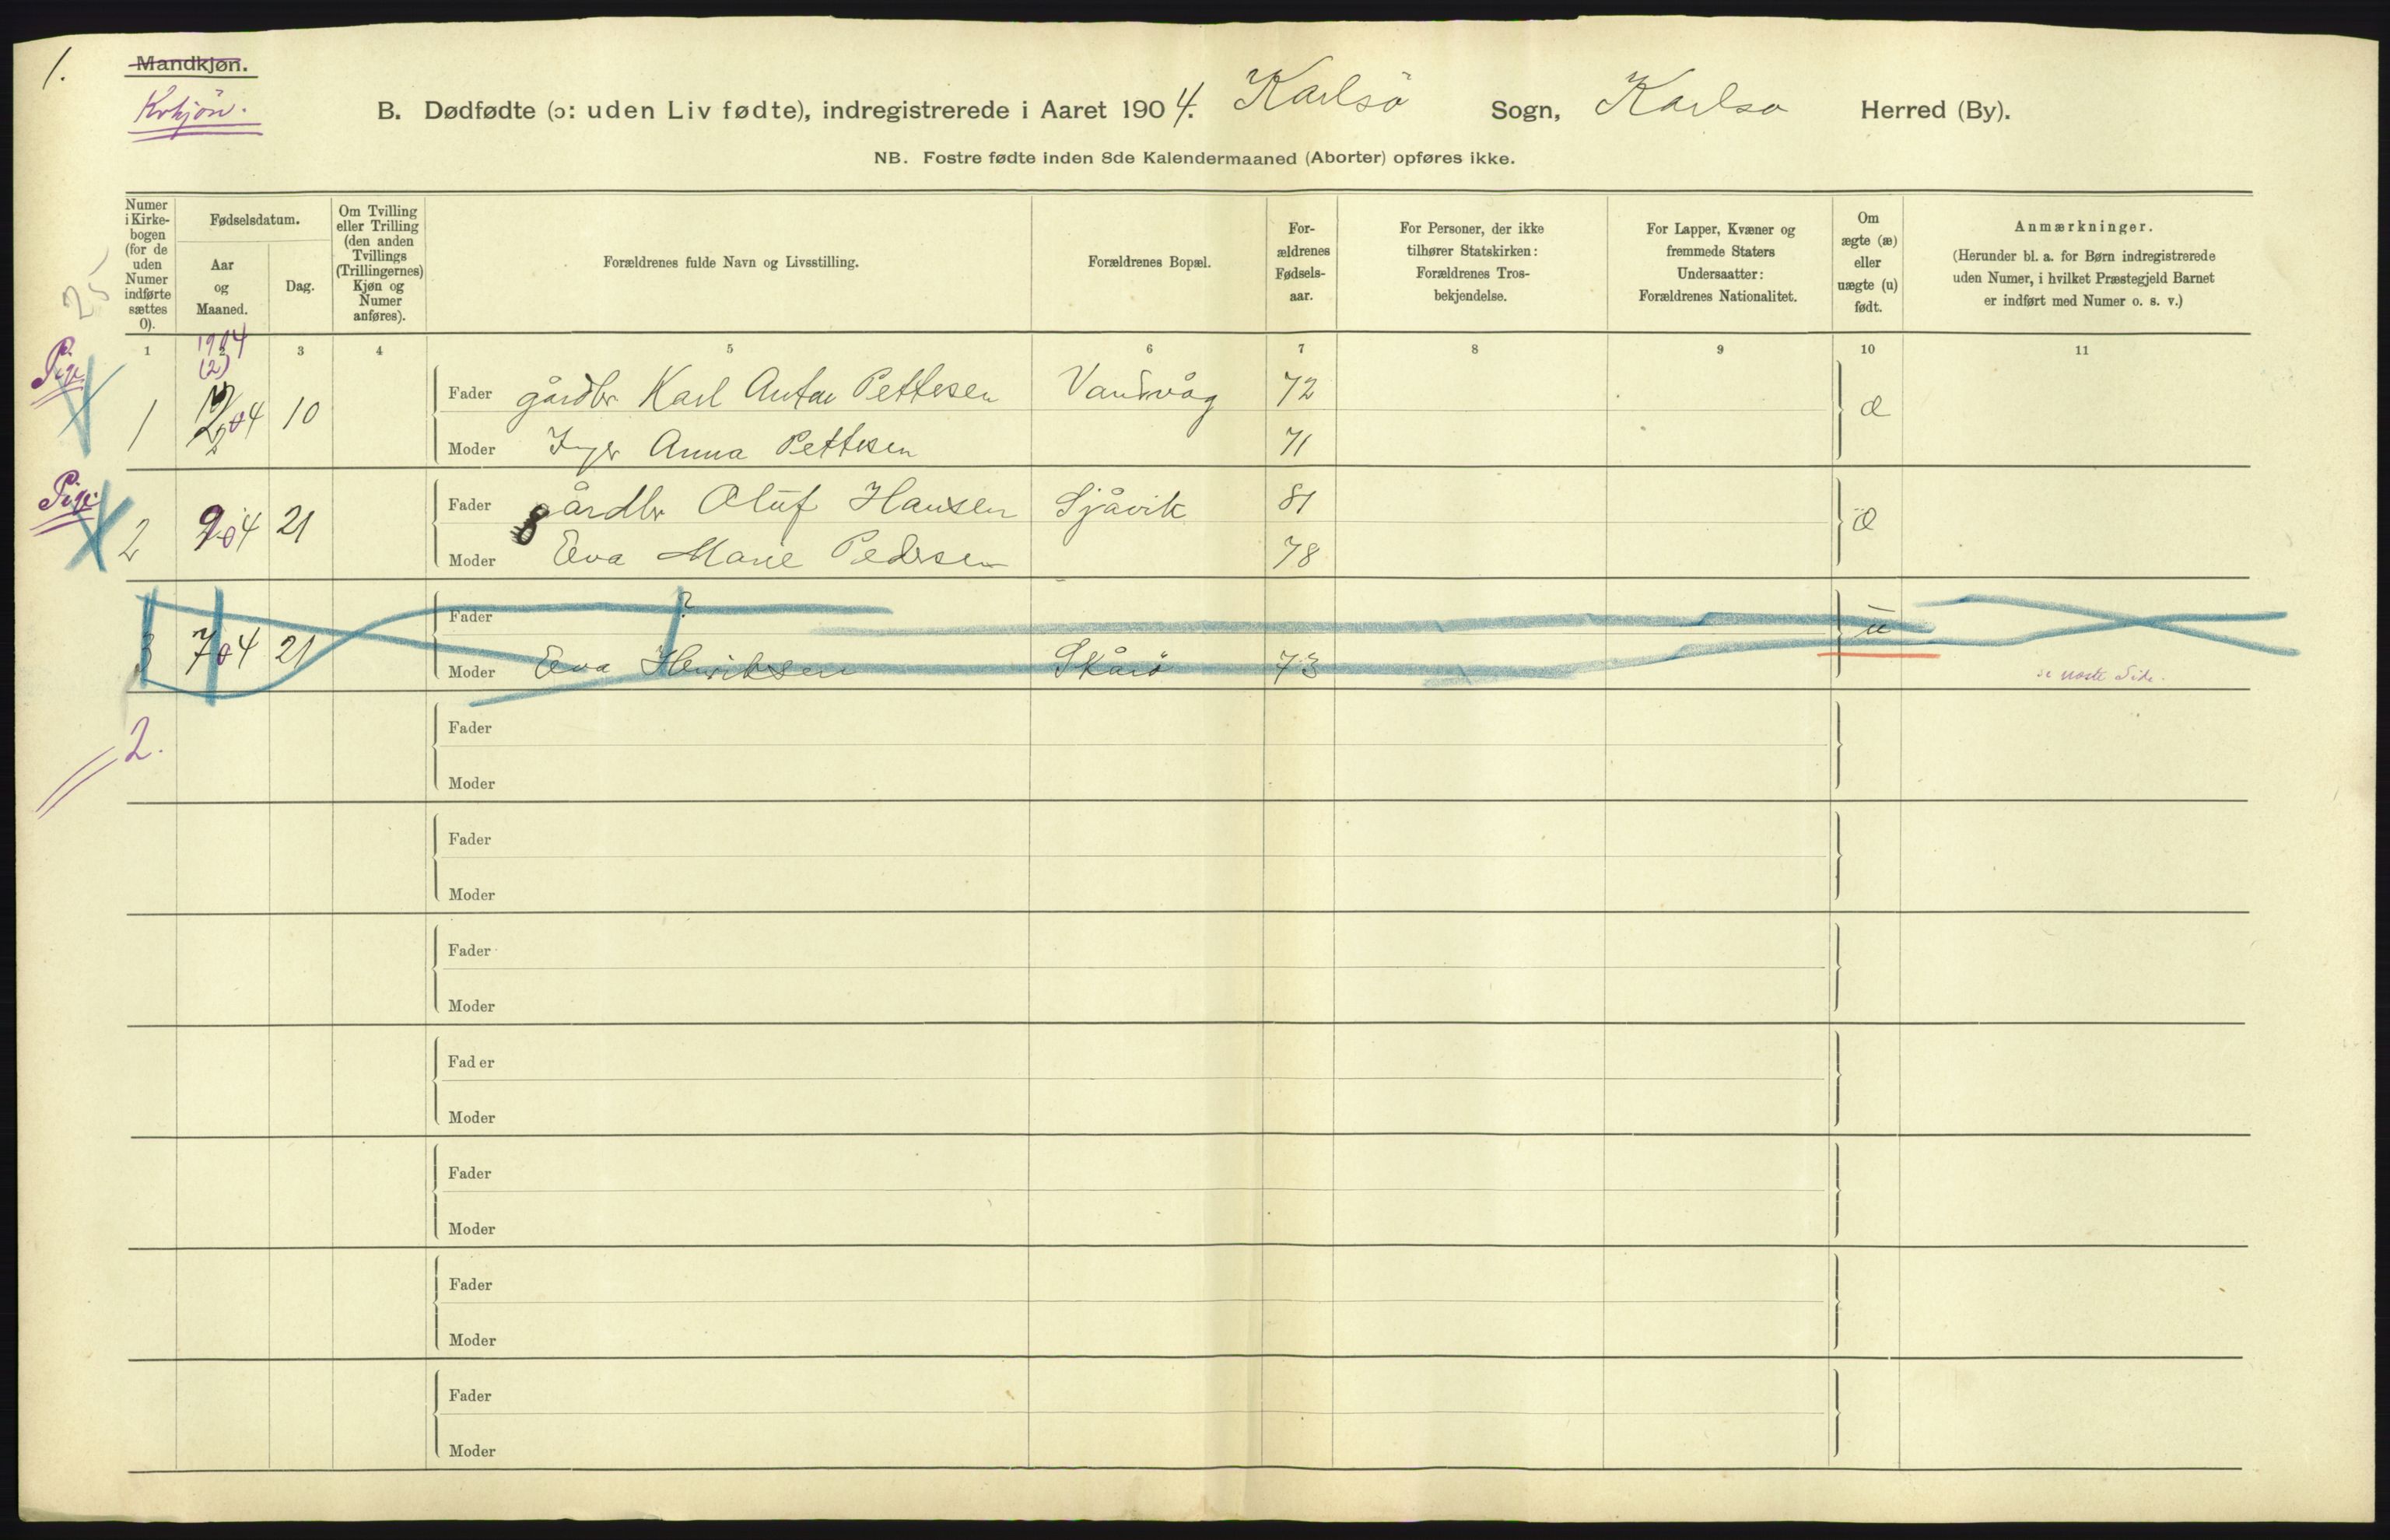 1.
Mandkjøn.
Kvkjön.
B. Dødfødte (ɔ: uden Liv fødte), indregistrerede i Aaret 1904. Karlsö Sogn, Karlsö Herred (By).
NB. Fostre fødte inden 8de Kalendermaaned (Aborter) opføres ikke.
Numer i Kirke-bogen (for de uden Numer indførte sættes 0).
Fødselsdatum.
Aar og Maaned.
Dag.
Om Tvilling eller Trilling (den anden Tvillings (Trillingernes) Kjøn og Numer anføres).
Forældrenes fulde Navn og Livsstilling.
Forældrenes Bopæl.
For-ældrenes Fødsels-aar.
For Personer, der ikke tilhører Statskirken: Forældrenes Tros-bekjendelse.
For Lapper, Kvæner og fremmede Staters Undersaatter: Forældrenes Nationalitet.
Om ægte (æ) eller uægte (u) født.
Anmærkninger.
(Herunder bl. a. for Børn indregistrerede uden Numer, i hvilket Præstegjeld Barnet er indført med Numer o. s. v.)
25
1 2 3 4 5 6 7 8 9 10 11
1904
(2)
Pige
1 04 10 Fader gårdbr Karl Anton Pettersen Vandvåg 72 æ
Moder Inger Anna Pettersen 71
Pige
2 904 21 Fader gårdbr Oluf Hansen Sjåvik 81 æ
8
Moder Eva Marie Pedersen 78
Fader ? u
3 704 21 Moder Eva Henriksen Skårö 73 se næste Side.
2.
Fader
Moder
Fader
Moder
Fader
Moder
Fader
Moder
Fader
Moder
Fader
Moder
Fader
Moder